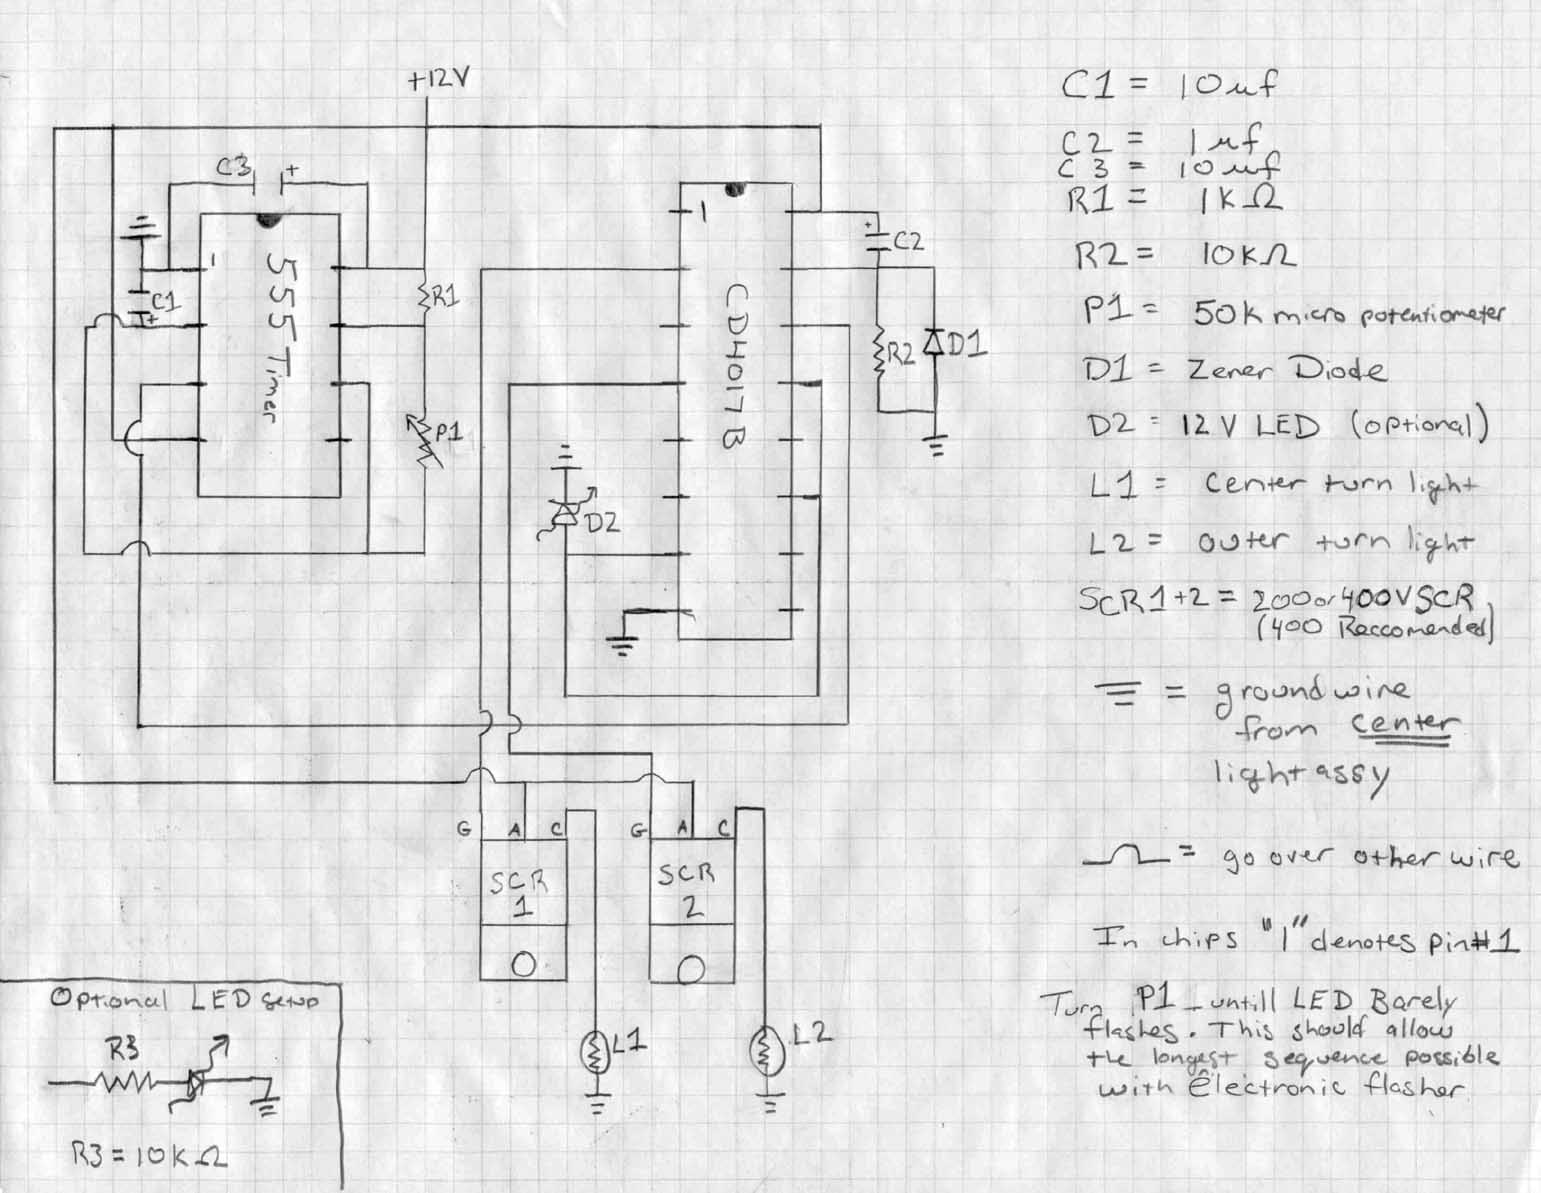 +12V
C3
+
1
555 Timer
C1
+
R1
P1
1
CD4017B
+
C2
R2
D1
D2
G A C
SCR
1
G A C
SCR
2
L1
L2
Optional LED setup
R3
R3 = 10KΩ
C1 = 10uf
C2 = 1uf
C3 = 10uf
R1 = 1KΩ
R2 = 10KΩ
P1 = 50k micro potentiometer
D1 = Zener Diode
D2 = 12V LED (optional)
L1 = center turn light
L2 = outer turn light
SCR1+2 = 200 or 400V SCR
(400 Reccomended)
= ground wire
from center
light assy
= go over other wire
In chips "1" denotes pin#1
Turn P1 untill LED Barely
flashes. This should allow
the longest sequence possible
with Electronic flasher